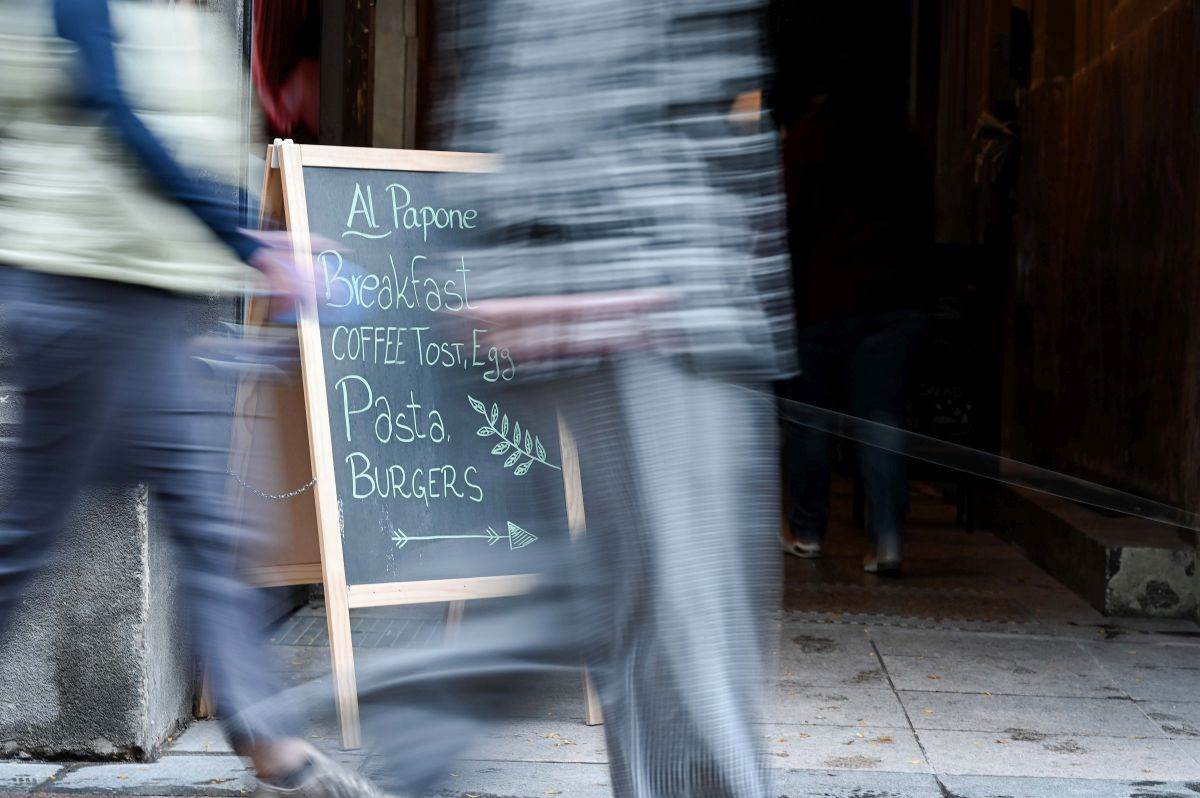 AL Papone
Breakfast
COFFEE TOST, Egg
Pasta,
BURGERS